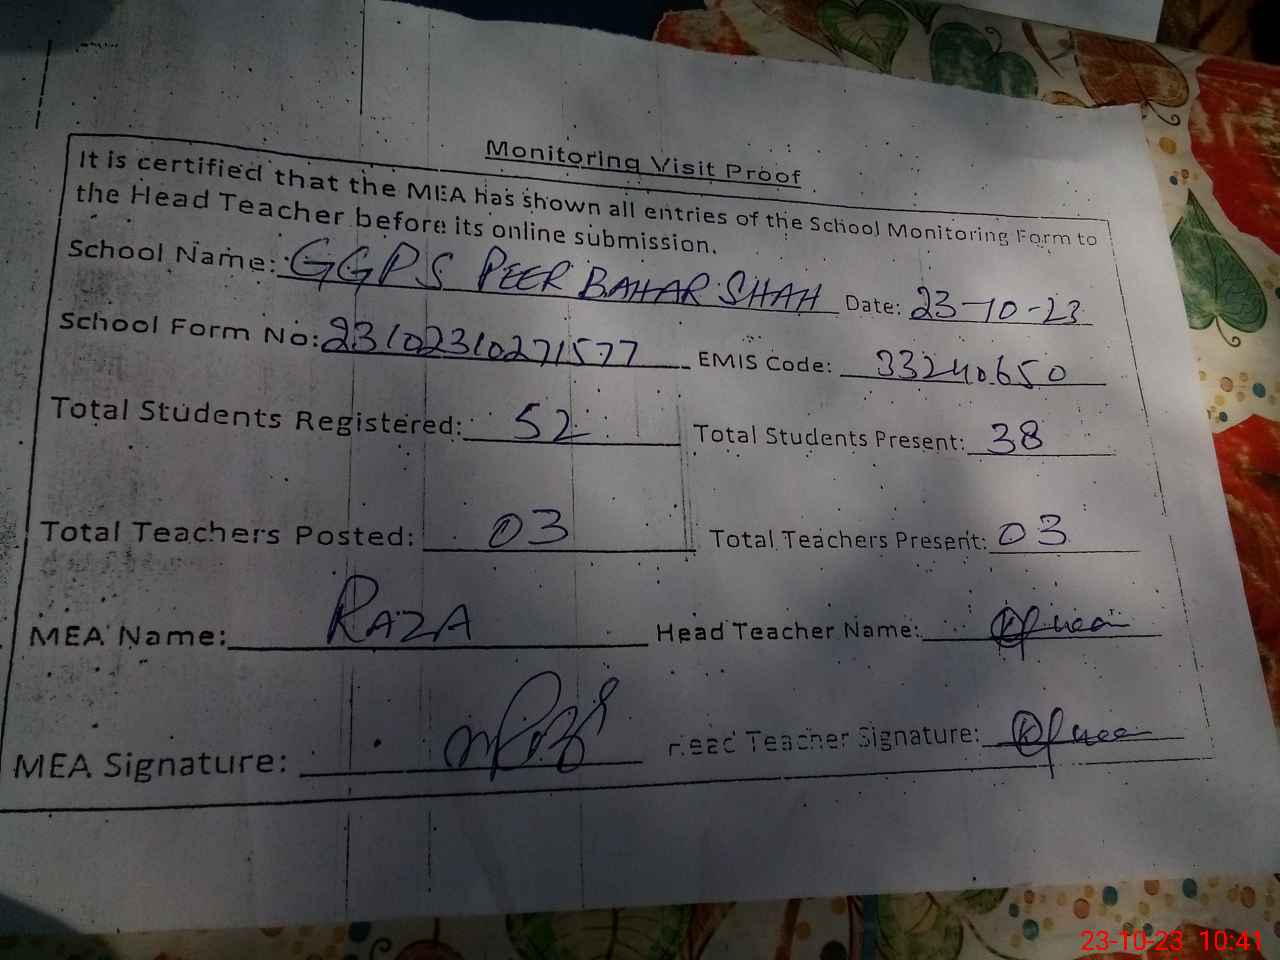 Monitoring Visit Proof
It is certified that the MEA has shown all entries of the School Monitoring Form to
the Head Teacher before its online submission.
School Name: GGPS PEER BAHAR SHAH Date: 23-10-23
School Form No: 23102310271577 EMIS Code: 33240650
Total Students Registered: 52 Total Students Present: 38
Total Teachers Posted: 03 Total Teachers Present: 03
MEA Name: RAZA Head Teacher Name:
MEA Signature: Head Teacher Signature:
23-10-23 10:41